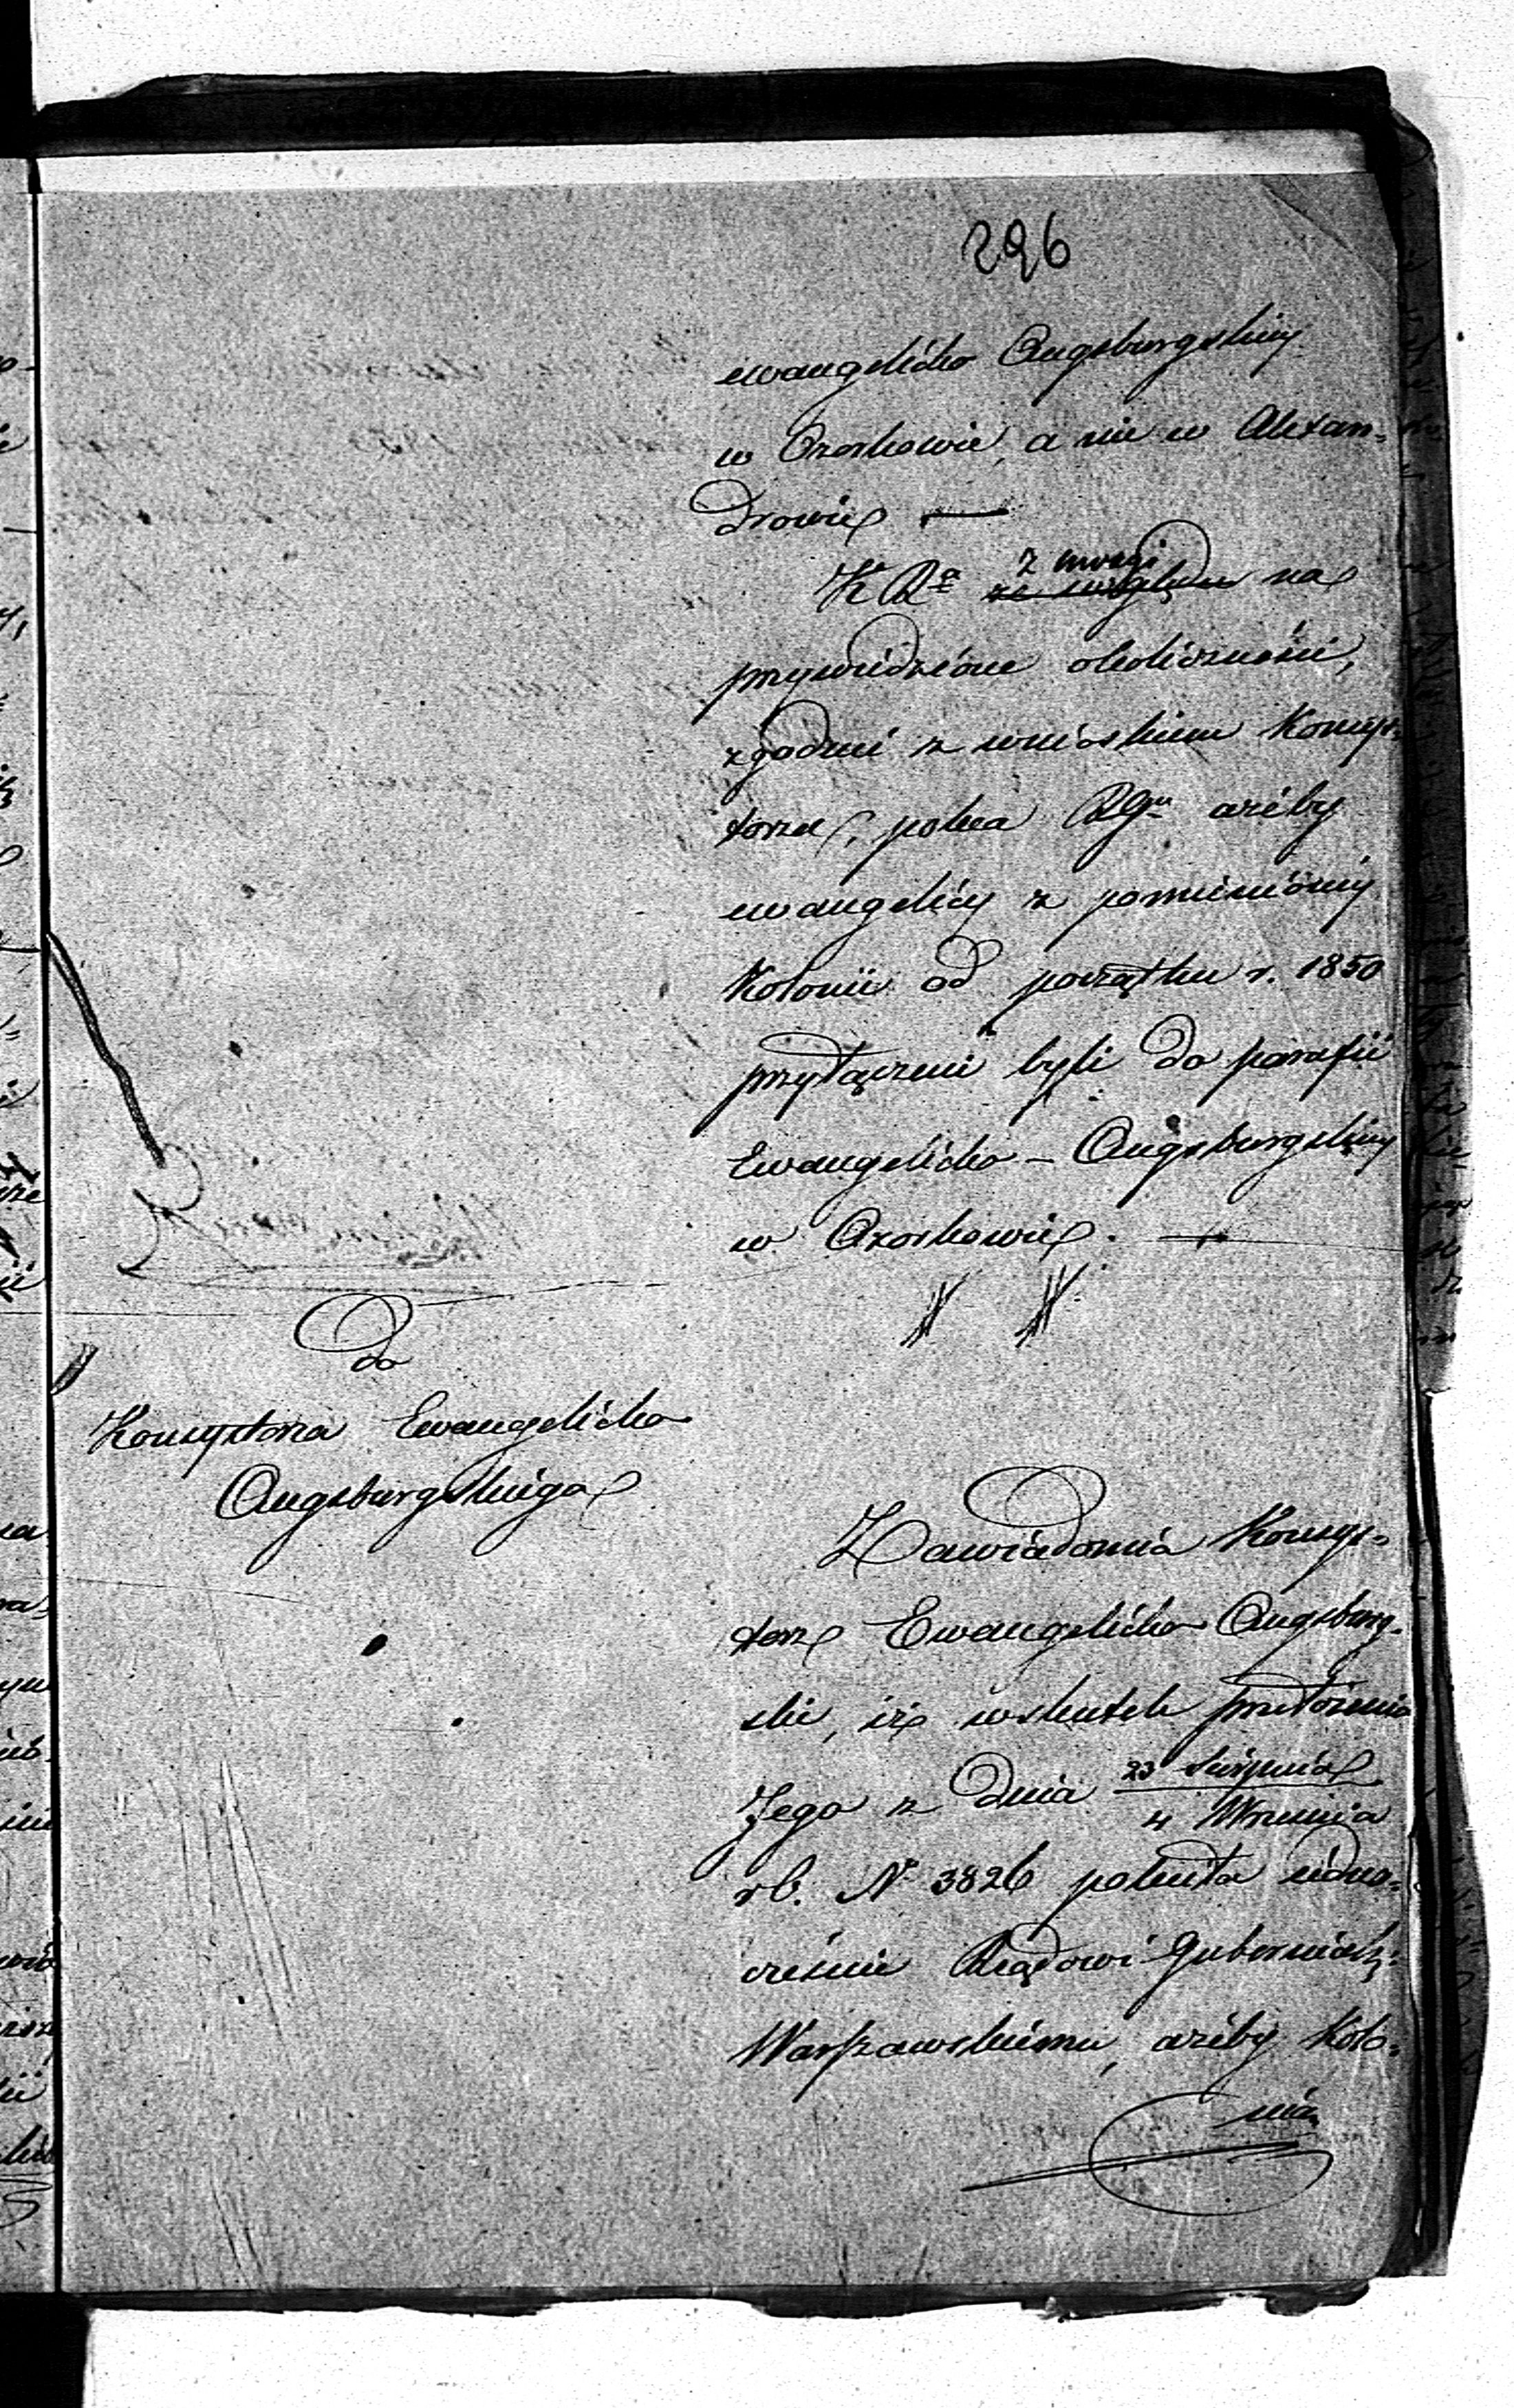 296
ewangelicko Augsburgskiey
w Ozorkowie, a nie w Alexan=
drowie —
K R^a z uwagi ze względu na
przywiedzione okoliczności,
zgodnie z wnioskiem Konsys=
torza, poleca RG^u ażeby
ewangelicy z pomienioney
Kolonii od początku r. 1850
przyłączeni byli do parafii
Ewangelicko - Augsburgskiey
w Ozorkowie. —
Do
Konsystorza Ewangelicko
Augsburgskiego
Zawiadomia Konsys=
torz Ewangelicko Augsburg=
ski, iż wskutek przełożenia
Jego z dnia 23 Sierpnia
4 Września
r b. N 3826 poleciła iedno=
cześnie Rządowi Gubernialn:
Warszawskiemu, ażeby Kolo=
nia